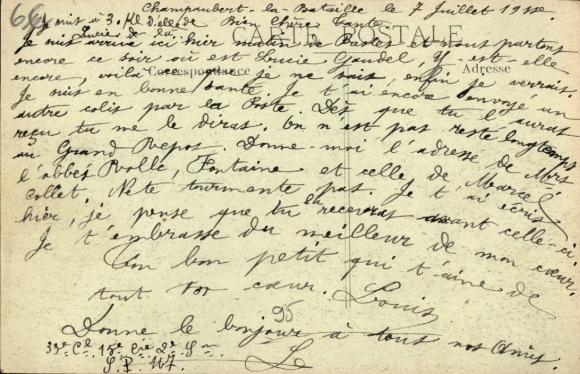 Champaubert-la-Bataille le 7 Juillet 19
Je suis à 3. Kl d'elle de Bien Chère Tante
Lucie de là
CARTE POSTALE
Je suis arrivé ici hier matin de et nous partons
encore ce soir où est Lucie Gaudel, Y est-elle
Correspondance
Adresse
encore, voilà je ne sais, enfin je verrais.
Je suis en bonne santé. Je t'ai encore envoyé un
autre colis par la Poste. Dès que tu l'auras
reçu tu me le diras. On n'est pas resté longtemps
au Grand Repos. Donne-moi l'adresse de Mrs
l'abbés Rolle, Fontaine et celle de Marcel
collet. Ne te tourmente pas. Je t'ai écris
hier, je pense que tu la receveras avant celle-ci.
Je t'embrasse du meilleur de mon cœur.
Ton bon petit qui t'aime de
tout ton cœur. Louis
95
Donne le bonjour à tous nos Amis.
15e Cie 2e Son
S.P. 167.